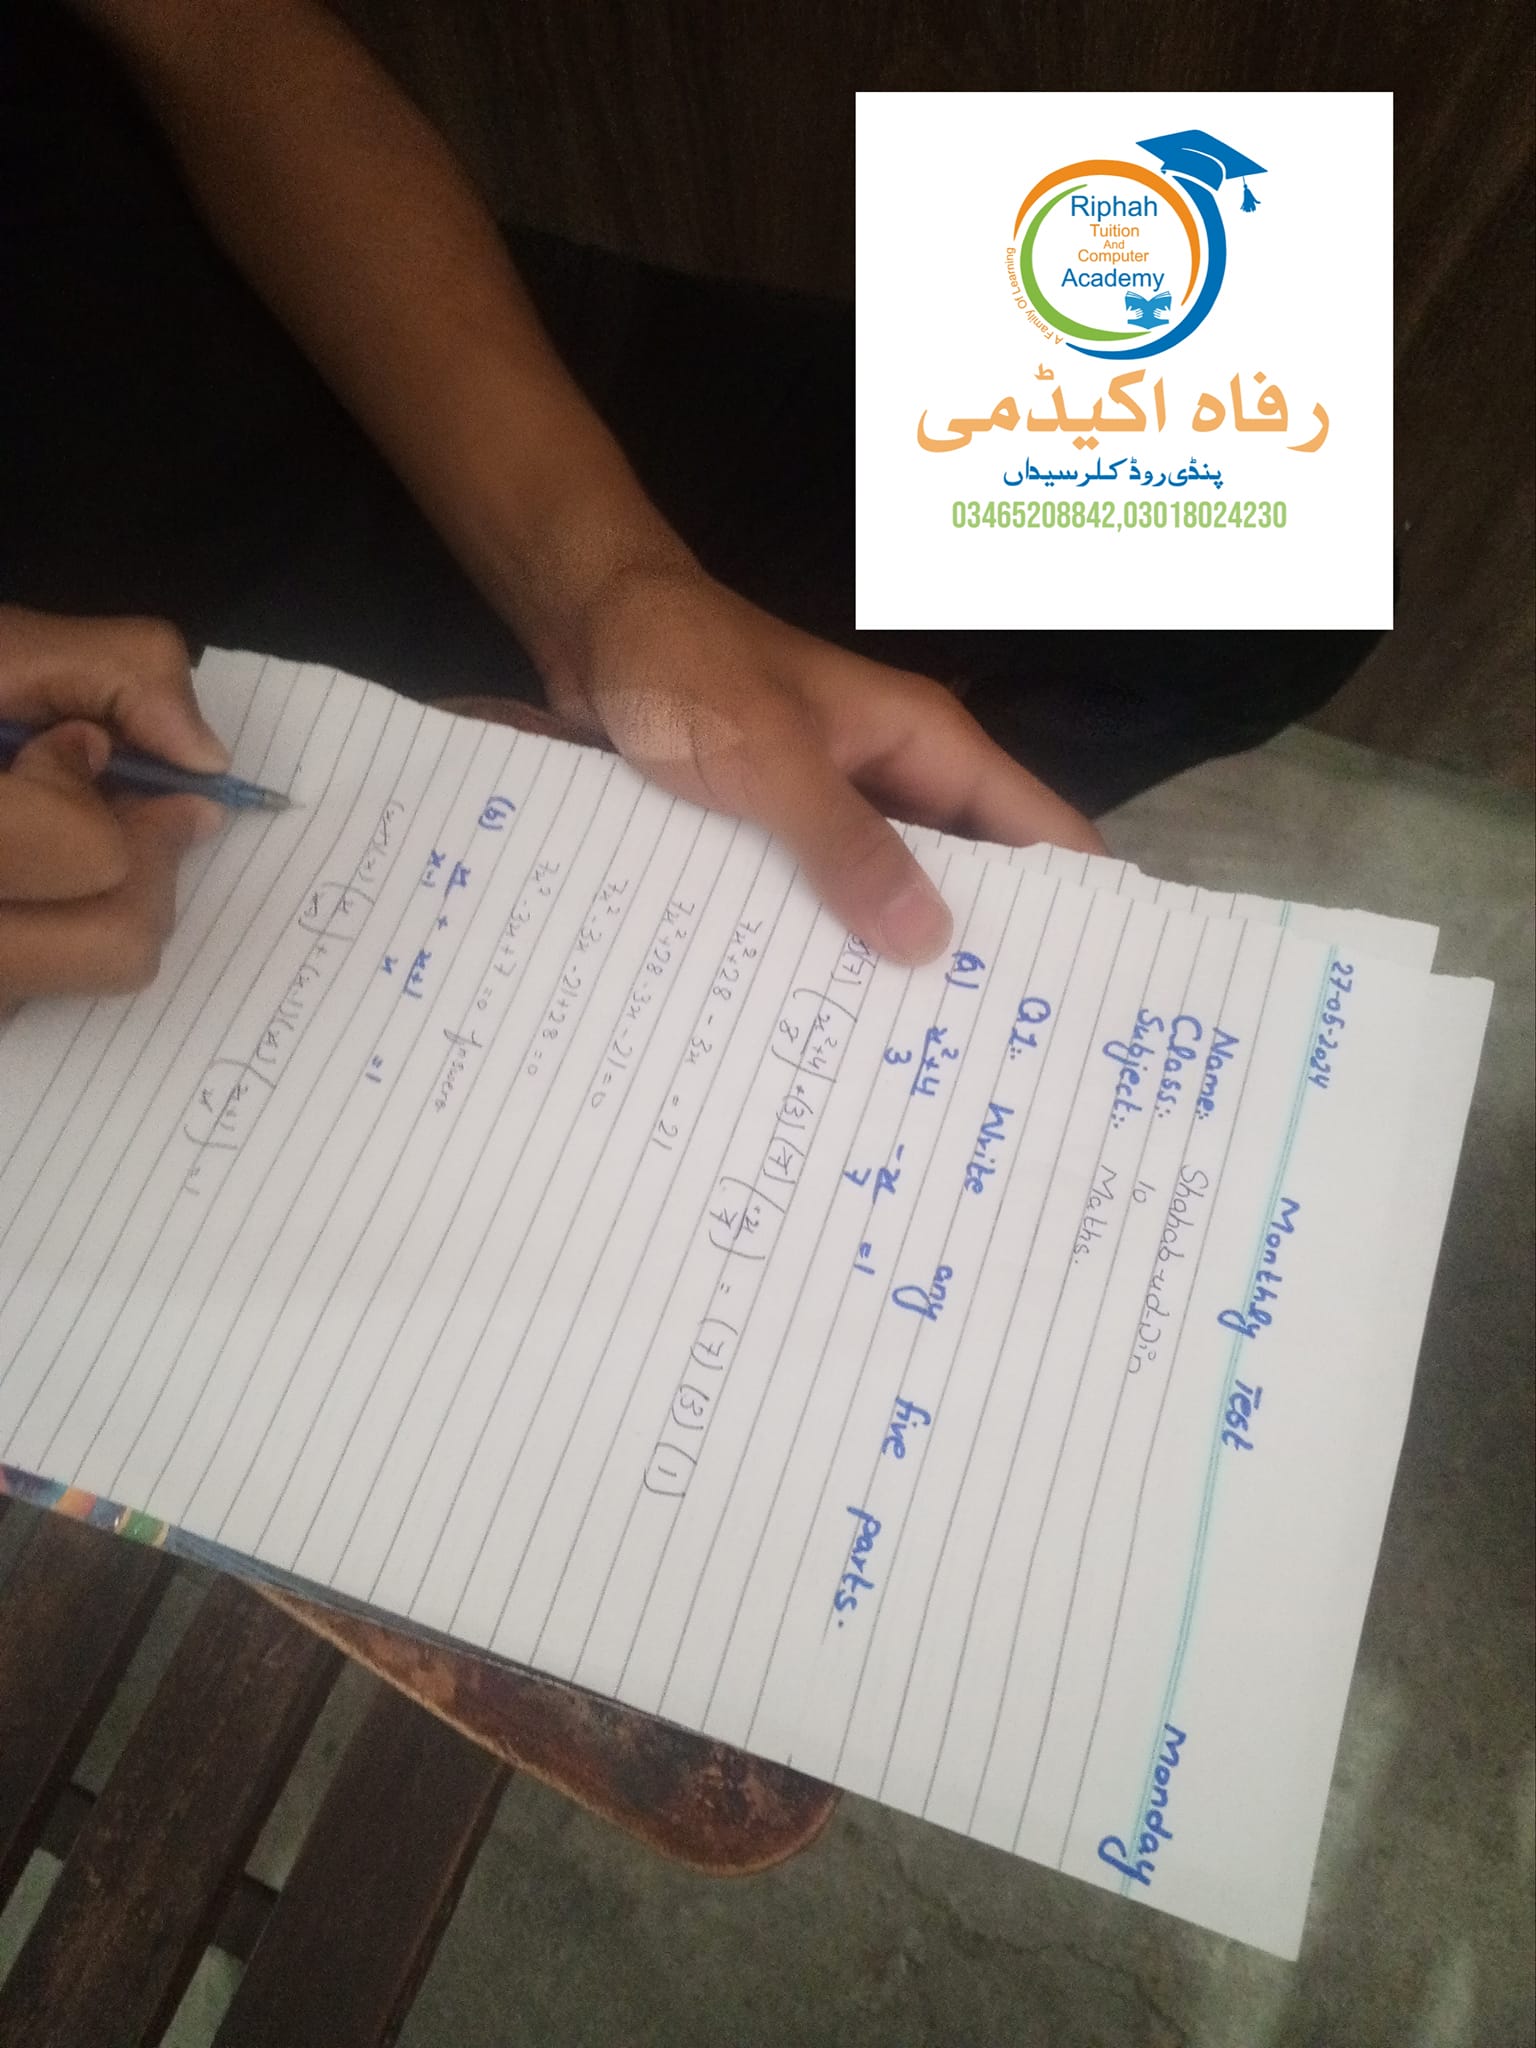 Riphah
Tuition
And
Computer
Academy
A Family Of Learning
رفاہ اکیڈمی
پنڈی روڈ کلرسیداں
03465208842,03018024230
27-05-2024 Monthly Test Monday
Name:: Shahab-ud-Din
Class:: 10
Subject:: Maths.
Q1:: Write any five parts.
a) x²+4/3 - x/7 = 1
(7) (x²+4/8) + (3) (7) (-x/7) = (7) (3) (1)
7x²+28 - 3x = 21
7x²+28-3x-21=0
7x²-3x-21+28=0
7x²-3x+7=0 Answer
(b) x/x-1 + x+1/x = 1
+(x-1)(x)(x+1/x)=1